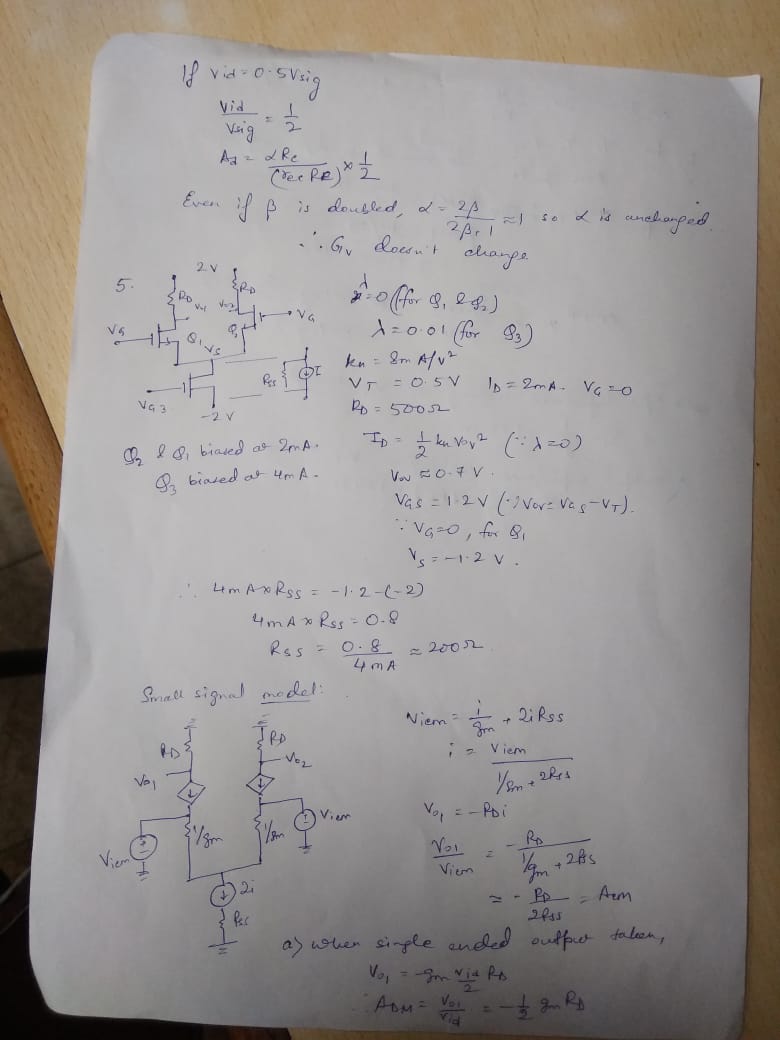 If Vid = 0.5Vsig
Vid/Vsig = 1/2
Ad = αRc/(re+RE) × 1/2
Even if β is doubled, α = 2β/(2β+1) ≈ 1 so α is unchanged.
∴ Gv doesn't change
5.
2V
RD Vo1 Vo2 RD
VG Q1 VS Q2 VG
VG3 -2V RSS I
λ=0 (for Q1 & Q2)
λ=0.01 (for Q3)
kn = 8mA/V²
VT = 0.5V ID = 2mA. VG=0
RD = 500Ω
Q2 & Q1 biased at 2mA.
Q3 biased at 4mA.
ID = 1/2 kn Vov² (∵ λ=0)
Vov ≈ 0.7V.
VGS = 1.2V (∵ Vov = VGS-VT).
∵ VG=0, for Q1
VS = -1.2V.
∴ 4mA × RSS = -1.2-(-2)
4mA × RSS = 0.8
RSS = 0.8/4mA ≈ 200Ω
Small signal model:
RD RD
Vo1 Vo2
Vicm 1/gm 1/gm Vicm
2i
RSS
Vicm = i/gm + 2iRSS
i = Vicm/(1/gm + 2RSS)
Vo1 = -RDi
Vo1/Vicm = -RD/(1/gm + 2RSS)
≈ -RD/2RSS = Acm
a) when single ended output taken,
Vo1 = -gm Vid/2 RD
∴ ADM = Vo1/Vid = -1/2 gmRD